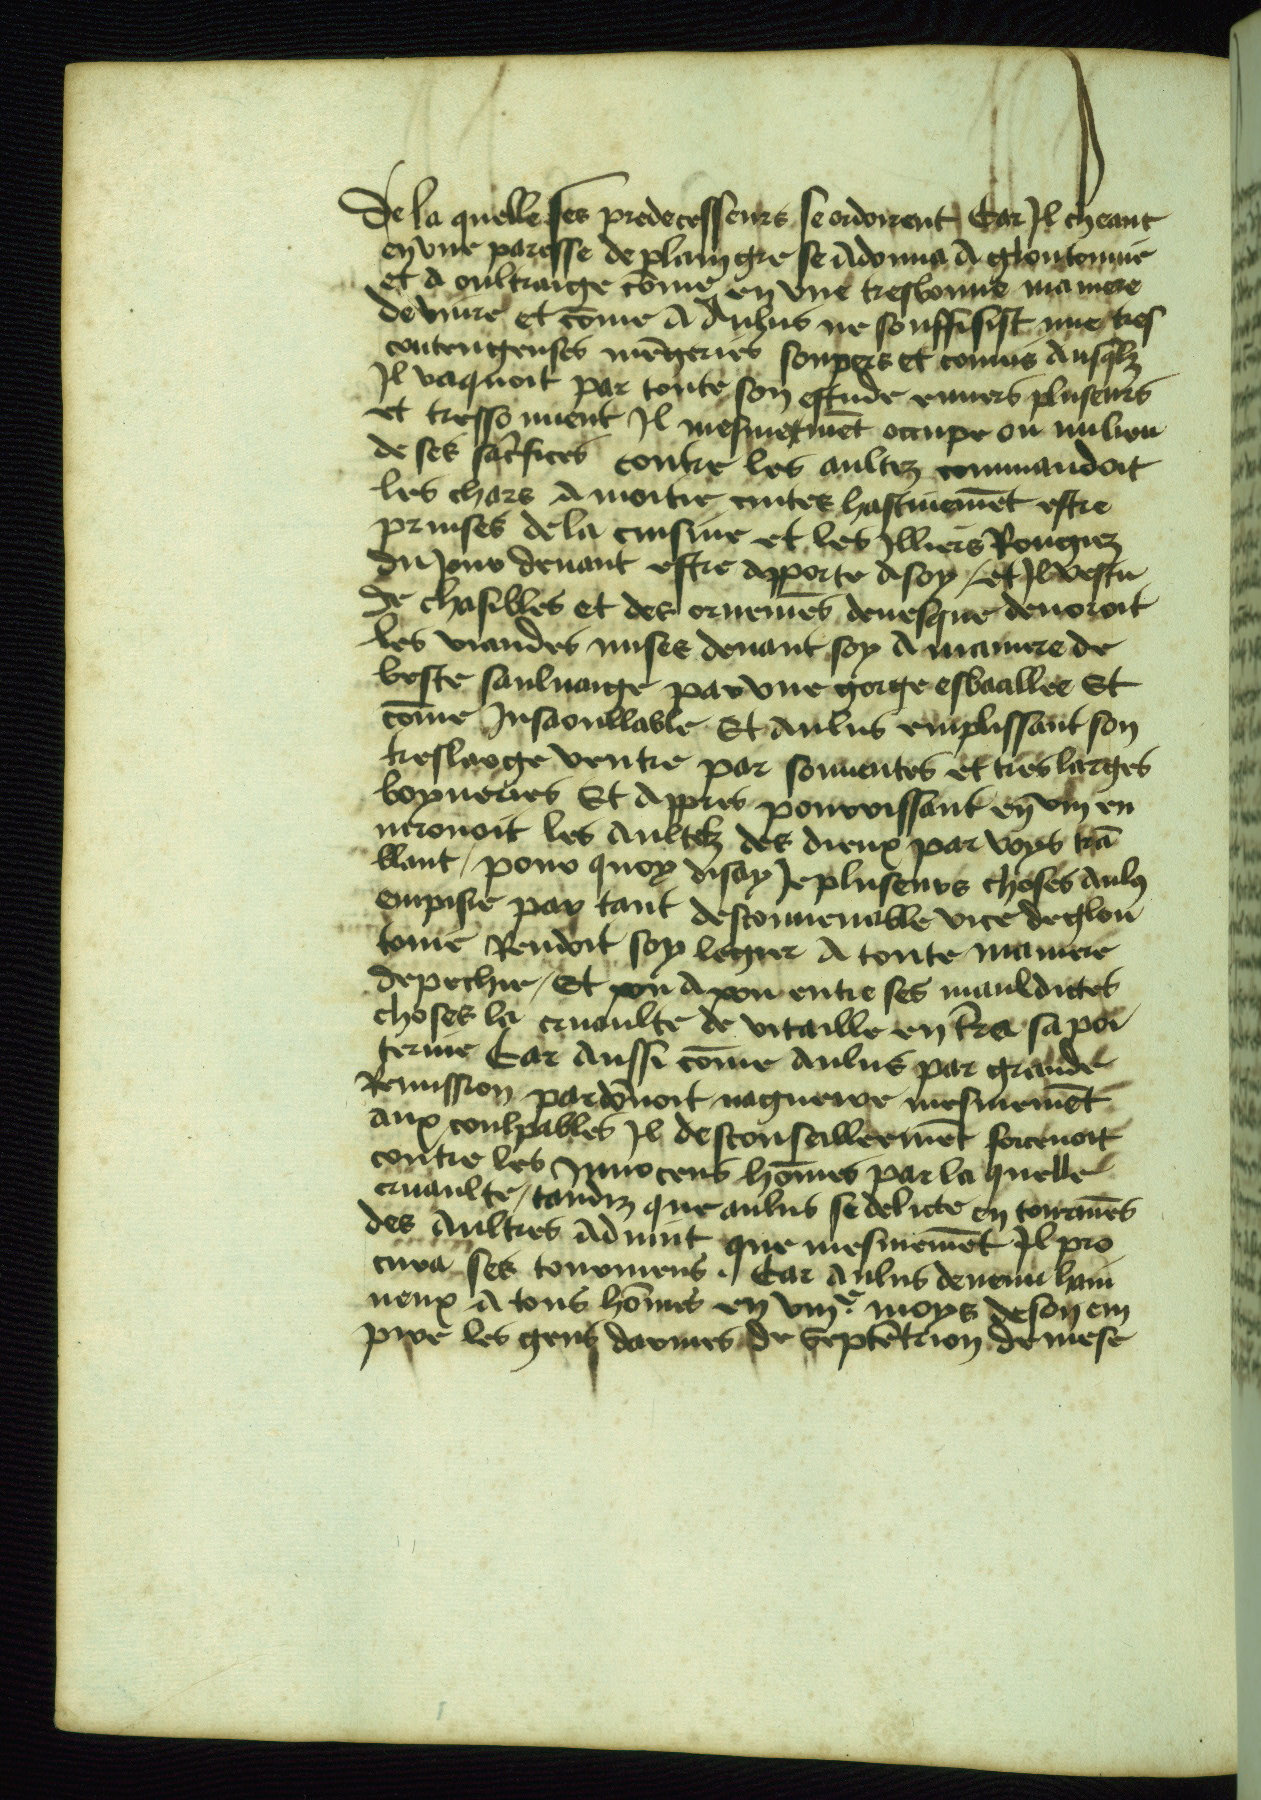 De la quelle ses predecesseurs se ordoirent Car Il cheant
en vne paresse de plain gre se Adonna A gloutonnie
et A oultraige cōme en vne tresbonne maniere
de viure et cōme A Aulus ne souffisist mie tres
mēgeries soupers et
Il vaquoit par toute son estude enuers pluseurs
et tressouuent Il mesmemēt occupe ou milieu
de ses sacrifices contre les aultez commandoit
les chars A moitie cuites hastiuemēt estre
prinses de la cuisine et les Rongiez
du Jour deuant estre apporte a soy / et Il vestu
de chasibles et des ornemēs deuesque deuoroit
les viandes mises deuant soy A maniere de
beste sauluaige par vne gorge esbaallee Et
cōme Insaoullable Et Aulus emplissant son
treslarge ventre par souuentes et tres larges
boyueries Et Appres pourrissant en vin en
les Aultelz des dieux par voys trā
blant / pour quoy disay Je pluseurs choses Aulus
par tant desconuenable vice de glou
tonie Rendoit soy legier A toute maniere
de pechie / Et pou A pou entre ses mauldictes
choses la cruaulte de vitaille entra sa poi
terine Car Aussi cōme Aulus par grande
Remission pardōnoit naguerre mesmemēt
aux coulpables Il desconseilleemēt forcenoit
contre les Innocens hōmes par la quelle
cruaulte / tandiz que aulus se delicte en tourmēs
des Aultres Aduint que mesmemēt Il pro
cura ses tourmens . Car Aulus deuenu hain
neux A tous hōmes en viiie moys de son em
pire les gens darmes de Septētrion de mese